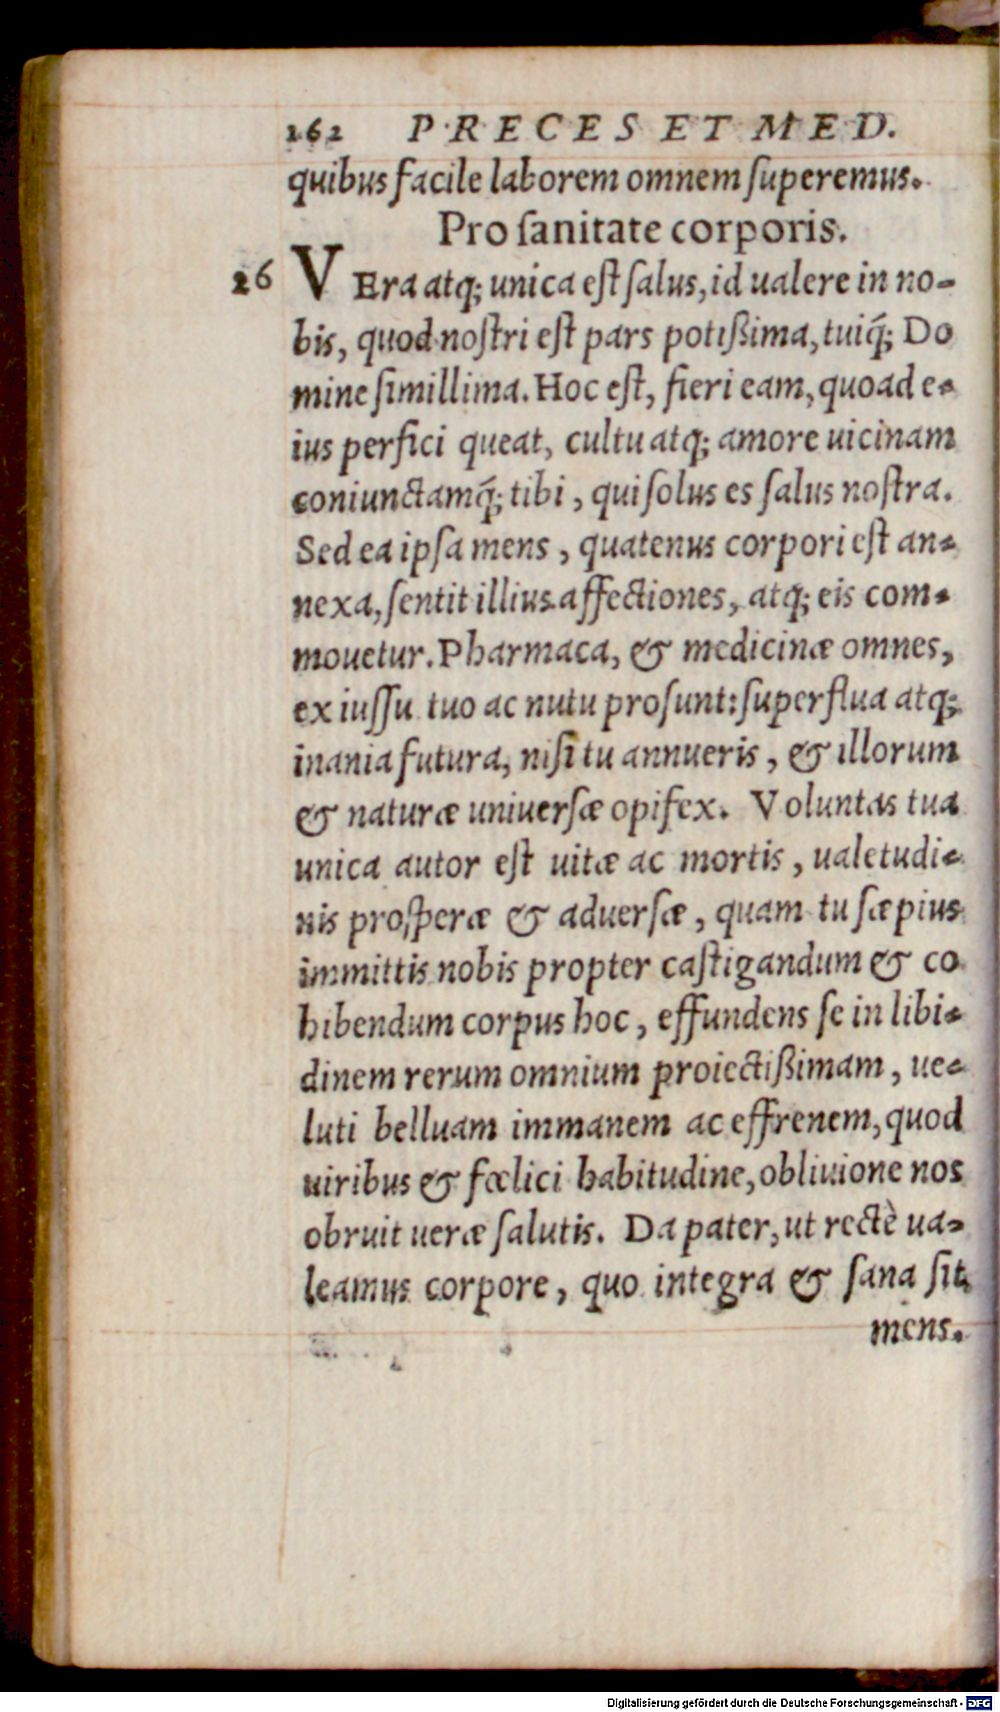 162 PRECES ET MED.
quibus facile laborem omnem ſuperemus.
Pro ſanitate corporis.
26 VEra atq; unica eſt ſalus, id ualere in no-
bis, quod noſtri eſt pars potißima, tuiq́; Do
mine ſimillima. Hoc eſt, fieri eam, quoad e-
ius perfici queat, cultu atq; amore uicinam
coniunctamq́; tibi, qui ſolus es ſalus noſtra.
Sed ea ipſa mens, quatenus corpori eſt an-
nexa, ſentit illius affectiones, atq; eis com-
mouetur. Pharmaca, & medicinæ omnes,
ex iuſſu tuo ac nutu proſunt: ſuperflua atq;
inania futura, niſi tu annueris, & illorum
& naturæ uniuerſæ opifex. Voluntas tua
unica autor eſt uitæ ac mortis, ualetudi-
nis proſperæ & aduerſæ, quam tu ſæpius
immittis nobis propter caſtigandum & co
hibendum corpus hoc, effundens ſe in libi-
dinem rerum omnium proiectißimam, ue-
luti belluam immanem ac effrenem, quod
uiribus & fœlici habitudine, obliuione nos
obruit ueræ ſalutis. Da pater, ut rectè ua-
leamus corpore, quo integra & ſana ſit
mens.
Digitalisierung gefördert durch die Deutsche Forschungsgemeinschaft - DFG